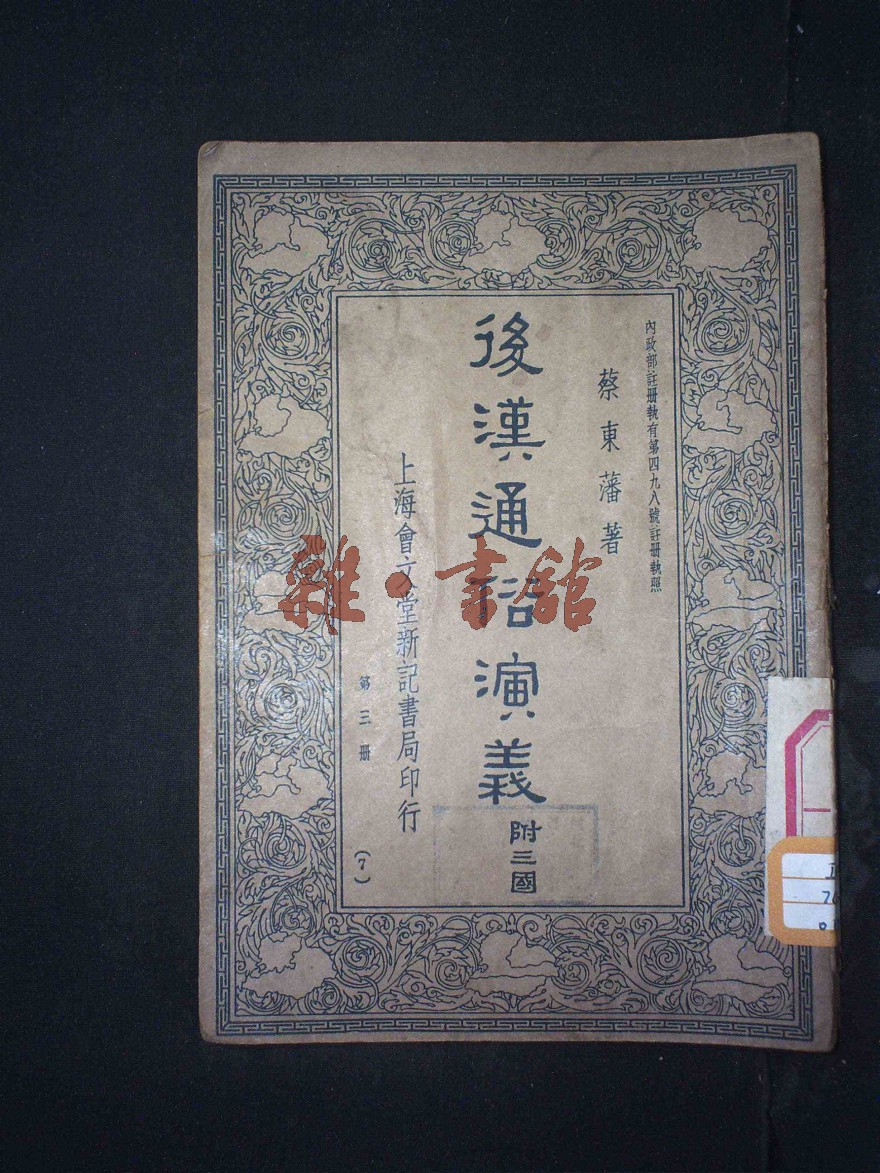 內政部註冊執有第四九八號註册執照
蔡東藩著
後漢通俗演義
附三國
上海會文堂新記書局印行
第三册
(7)
雜·書館